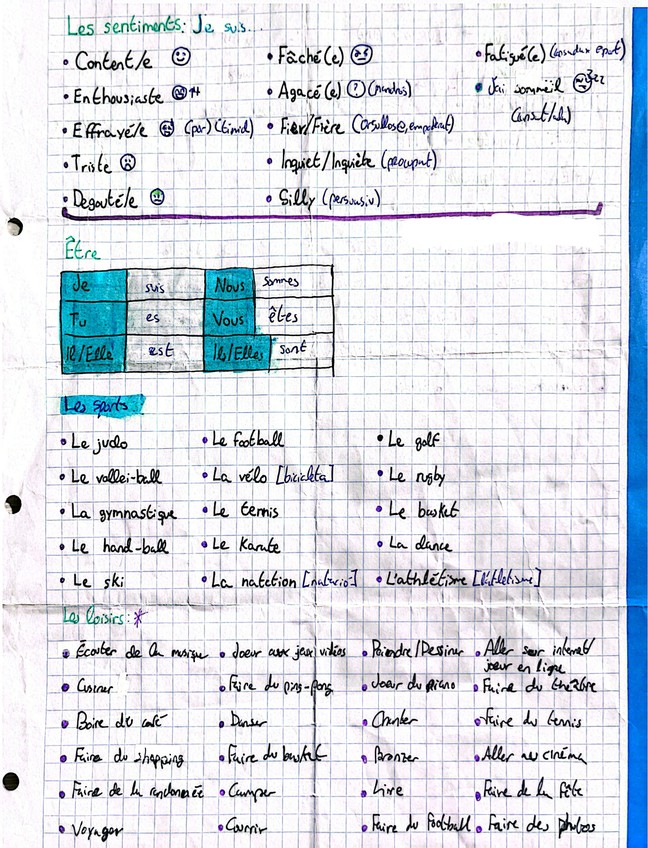 Les sentiments: Je suis...
• Content/e • Fâché(e) • Fatigué(e)
• Enthousiaste • Agacé(e) • J'ai sommeil
• Effrayé/e (por) (tímid) • Fier/Fière
(cansat/da)
• Triste • Inquiet/Inquiète (preocupat)
• Degouté/e • Silly (persuasiu)
Être
Je suis Nous sommes
Tu es Vous êtes
Il/Elle est Ils/Elles sont
Les sports
• Le judo • Le football • Le golf
• Le vollei-ball • La vélo [bicicleta] • Le rugby
• La gymnastique • Le tennis • Le basket
• Le hand-ball • Le Karate • La dance
• Le ski • La natation [natació] • L'athlétisme [l'atletisme]
Les loisirs: *
• Écouter de la musique • Joeur aux jeux vidéos • Peindre/Dessiner • Aller sur internet/
joeur en ligne
• Cusiner • Faire du ping-pong • Joeur du piano • Faire du theâtre
• Boire du café • Danser • Chanter • Faire du tennis
• Faire du shopping • Faire du basket • Bronzer • Aller au cinéma
• Faire de la randonnée • Camper • Lire • Faire de la fête
• Voyager • Courrir • Faire du football • Faire des photos